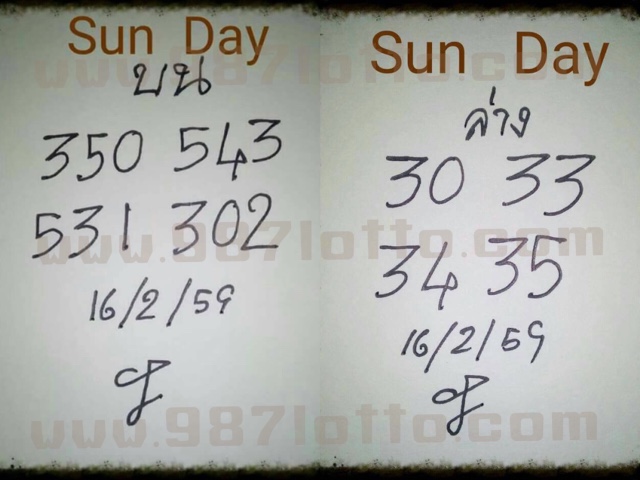 Sun Day
บน
350 543
531 302
16/2/59
www.987lotto.com
Sun Day
ล่าง
30 33
34 35
16/2/59
www.987lotto.com